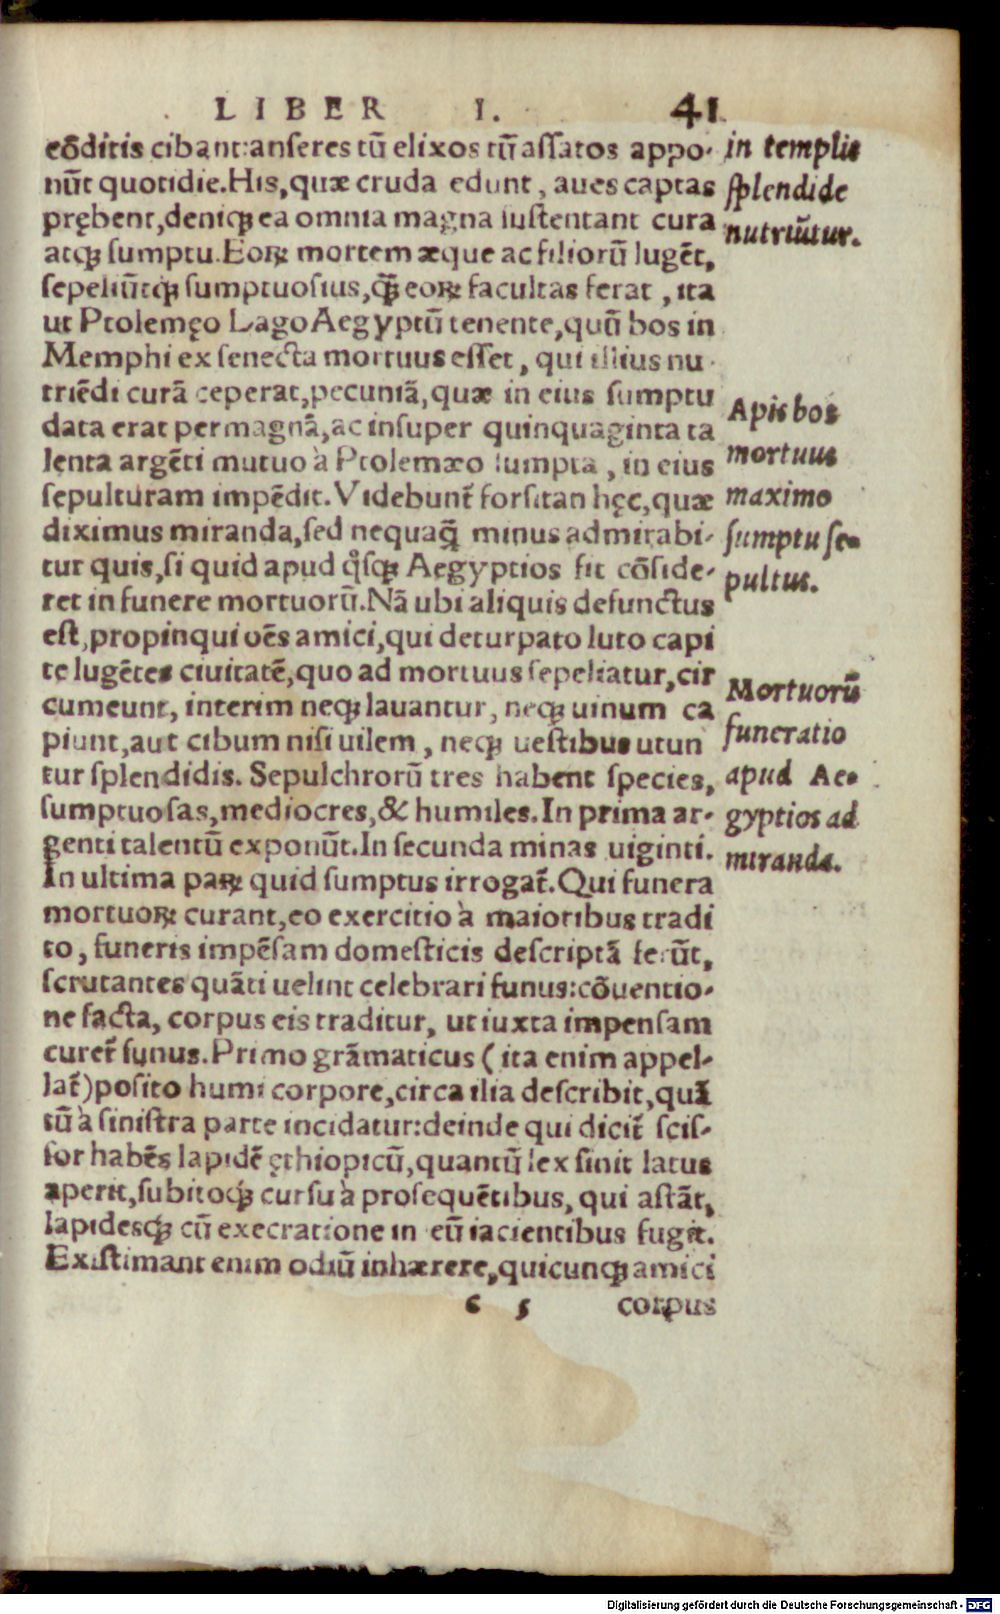 LIBER I. 41
cōditis cibant: anſeres tū elixos tū aſſatos appo-
nūt quotidie. His, quæ cruda edunt, aues captas
prębent, deniqꝫ ea omnia magna ſuſtentant cura
atqꝫ ſumptu. Eoꝝ mortem æque ac filiorū lugēt,
ſepeliūtqꝫ ſumptuoſius, ꝙ̃ eoꝝ facultas ferat, ita
ut Ptolemęo Lago Aegyptū tenente, quū bos in
Memphi ex ſenecta mortuus eſſet, qui illius nu-
triēdi curā ceperat, pecuniā, quæ in eius ſumptu
data erat permagnā, ac inſuper quinquaginta ta
lenta argēti mutuo à Ptolemæo ſumpta, in eius
ſepulturam impēdit. Videbunt̄ forſitan hęc, quæ
diximus miranda, ſed nequaq̃ minus admirabi-
tur quis, ſi quid apud qͥſqꝫ Aegyptios fit cōſide-
ret in funere mortuorū. Nā ubi aliquis defunctus
eſt, propinqui oēs amici, qui deturpato luto capi
te lugētes ciuitatē, quo ad mortuus ſepeliatur, cir
cumeunt, interim neqꝫ lauantur, neqꝫ uinum ca
piunt, aut cibum niſi uilem, neqꝫ ueſtibus utun
tur ſplendidis. Sepulchrorū tres habent ſpecies,
ſumptuoſas, mediocres, & humiles. In prima ar-
genti talentū exponūt. In ſecunda minas uiginti.
In ultima paꝝ quid ſumptus irrogat̄. Qui funera
mortuoꝝ curant, eo exercitio à maioribus tradi
to, funeris impēſam domeſticis deſcriptā ferūt,
ſcrutantes quāti uelint celebrari funus: cōuentio-
ne facta, corpus eis traditur, ut iuxta impenſam
curet̄ funus. Primo grāmaticus (ita enim appel-
lat̄) poſito humi corpore, circa ilia deſcribit, quā
tū à ſiniſtra parte incidatur: deinde qui dicit̄ ſciſ-
ſor habēs lapidē ęthiopicū, quantū lex ſinit latus
aperit, ſubitoqꝫ curſu à proſequētibus, qui aſtāt,
lapidesqꝫ cū execratione in eū iacientibus fugit.
Exiſtimant enim odiū inhærere, quicunqꝫ amici
c 5 corpus
in templis
ſplendide
nutriūtur.
Apis bos
mortuus
maximo
ſumptu ſe-
pultus.
Mortuorū
funeratio
apud Ae-
gyptios ad
miranda.
Digitalisierung gefördert durch die Deutsche Forschungsgemeinschaft - DFG